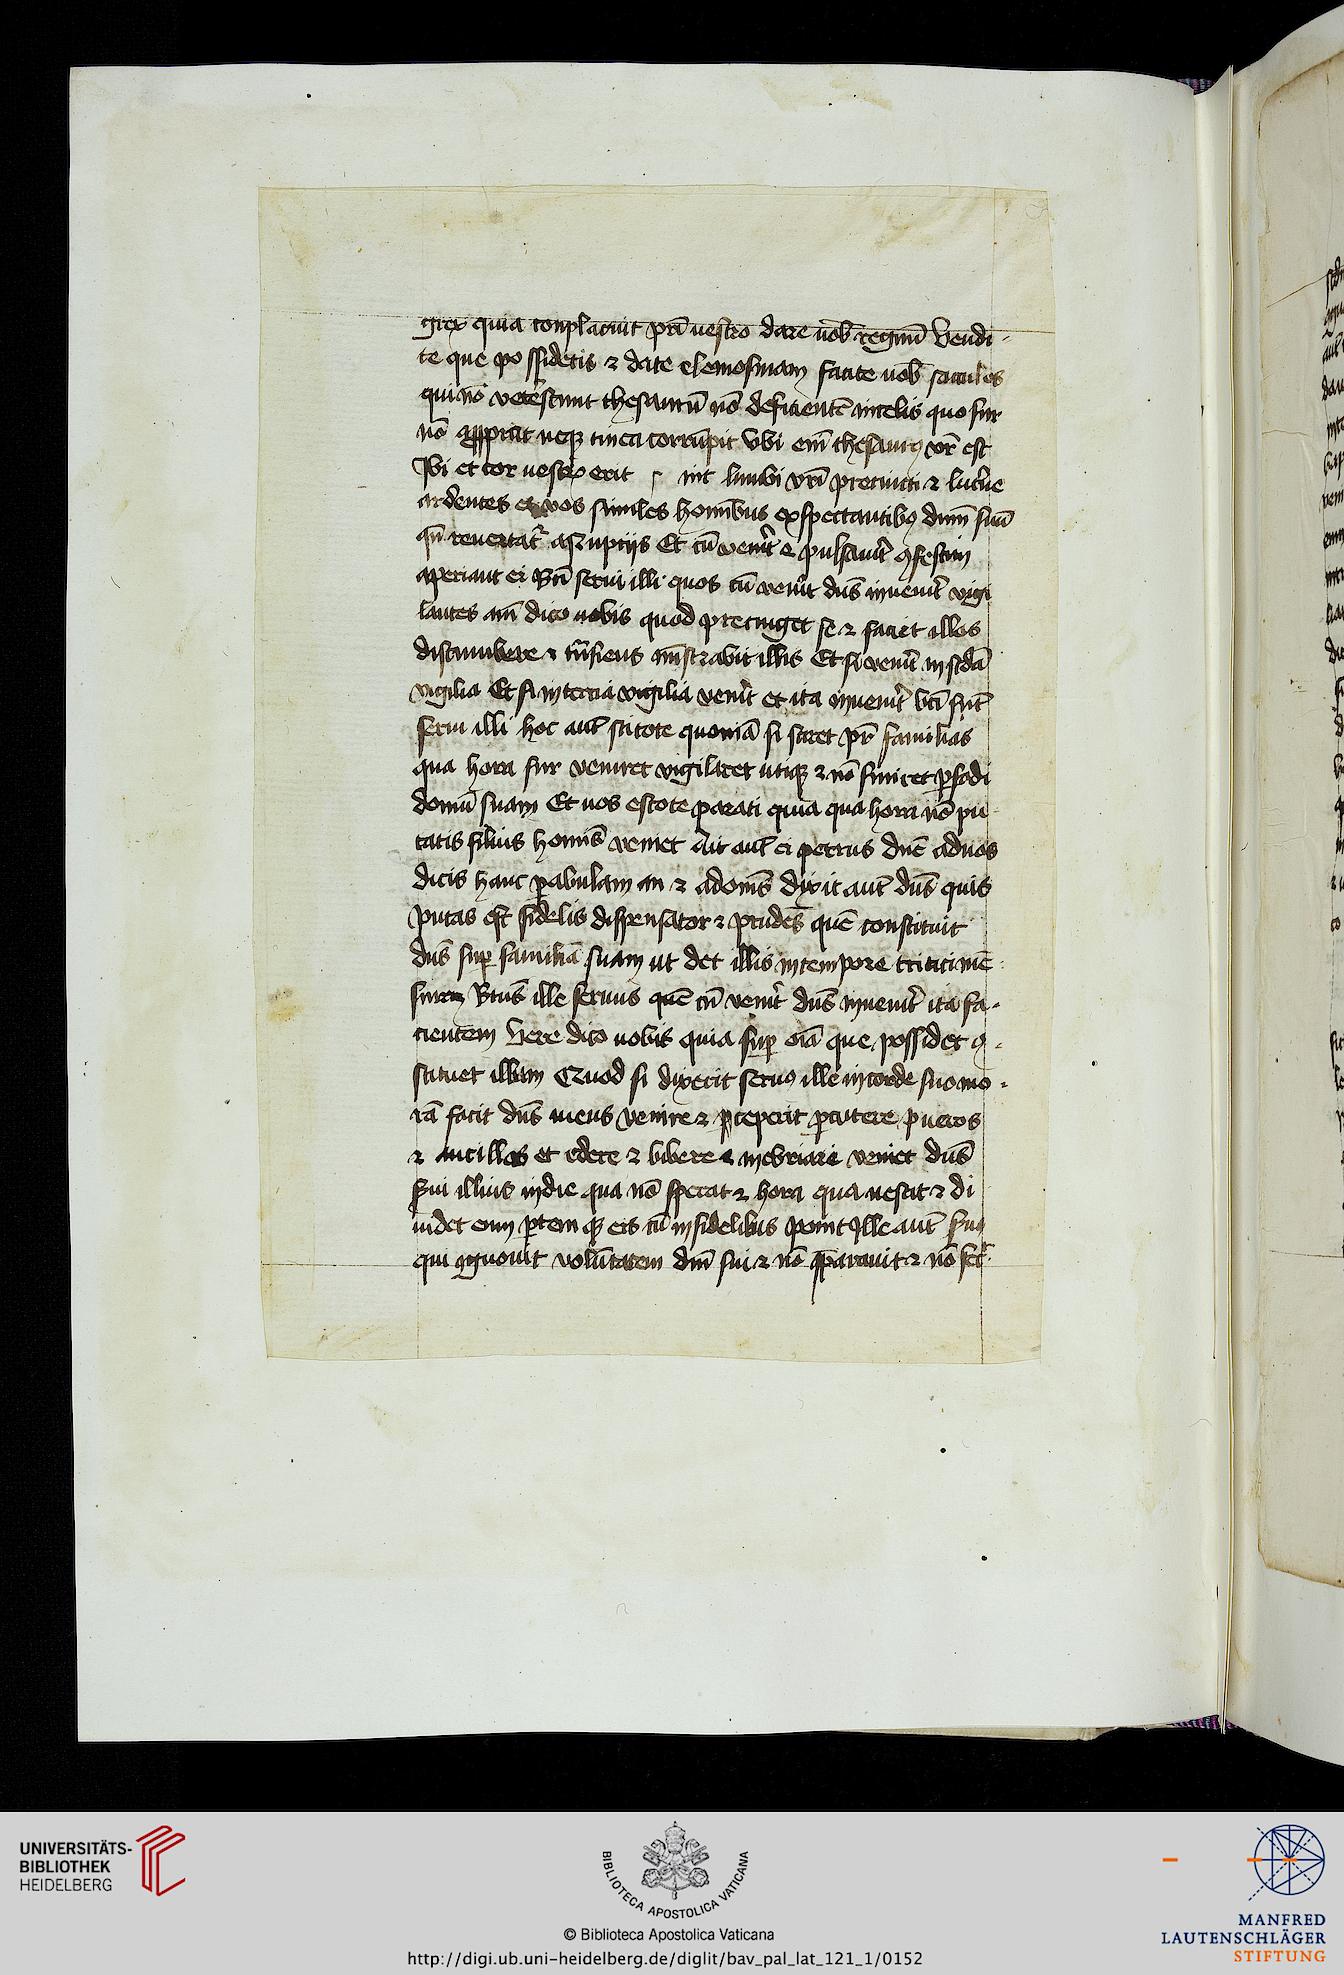 grex quia conplacuit pri̅ uestro dare uob̅ regnu̅ Vendi-
te que possidetis ⁊ date elemosinam facite uob̅ sacculos
qui no̅ veterescunt thesauru̅ no̅ deficiente̅ in celis quo fur
no̅ appriat neqꝫ tinea corru̅pit Vbi eni̅ thesaurꝰ vr̅ est
Ibi et cor uestrum erit int lumbi vri̅ precincti ⁊ lucerne
ardentes et vos similes hominibus expectantibꝰ dnm̅ suu̅
qn̅ reuertatr̉ a nuptijs Et cu̅ venerit ⁊ pulsauerit ꝯfestim
aperiant ei Bti̅ serui illi quos cu̅ venerit dns̅ inuenerit vigi
lantes am̅ dico uobis quod precinget se ⁊ faciet illos
discumbere ⁊ tn̅siens mi̅strabit illis Et si venerit in scda̅
vigilia Et si in tercia vigilia venerit et ita inuenerit bti̅ sunt
serui illi hoc aut̅ scitote quonia̅ si sciret pr̅ familias
qua hora fur veniret vigilaret utiqꝫ ⁊ no̅ sineret ꝑfodi
domu̅ suam Et uos estote parati quia qua hora no̅ pu
tatis filius homis̅ veniet Ait aut̅ ei petrus dne̅ ad nos
dicis hanc ꝑabulam an ⁊ ad omes̅ Dixit aut̅ dns̅ quis
putas est fidelis dispensator ⁊ prudes̅ que̅ constituit
dns̅ suꝑ familia̅ suam ut det illis in tempore tritici me̅
suram Btus̅ ille seruus que̅ cu̅ venerit dns̅ inuenerit ita fa-
cientem Vere dico uobis quia suꝑ oia̅ que possidet ꝯ-
stituet illum Quod si dixerit seruꝰ ille in corde suo mo-
ra̅ facit dns̅ meus venire ⁊ ceperit ꝑcutere pueros
⁊ ancillas et edere ⁊ bibere ⁊ inebriari veniet dns̅
sui illius in die qua no̅ sperat ⁊ hora qua nescit ⁊ di
uidet eum ꝑtem qꝫ eis cu̅ infidelibus ponit Ille aut̅ suꝰ
qui ꝯgnouit volu̅tatem dni̅ sui ⁊ no̅ p̅parauit ⁊ no̅ fec̅
UNIVERSITÄTS-
BIBLIOTHEK
HEIDELBERG
BIBLIOTECA APOSTOLICA VATICANA
© Biblioteca Apostolica Vaticana
http://digi.ub.uni-heidelberg.de/diglit/bav_pal_lat_121_1/0152
MANFRED
LAUTENSCHLÄGER
STIFTUNG